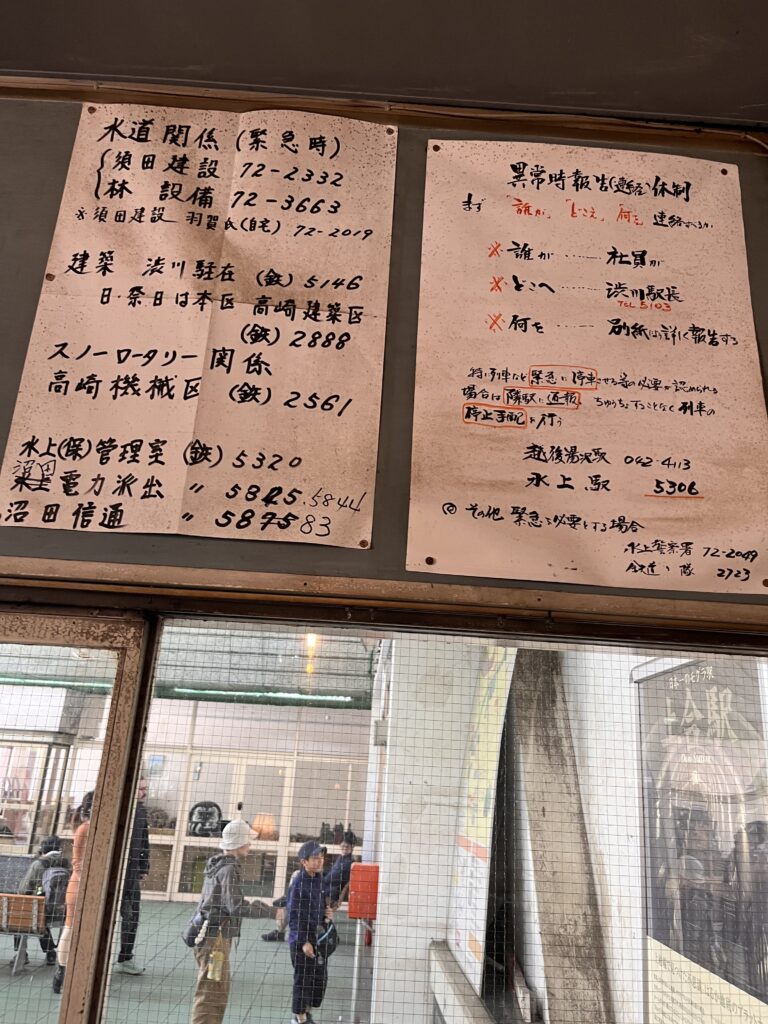 水道関係(緊急時)
須田建設 72-2332
林 設備 72-3663
※須田建設 羽賀氏(自宅) 72-2019
建築 渋川駐在 (鉄) 5146
日・祭日は本区 高崎建築区
(鉄) 2888
スノーロータリー関係
高崎機械区 (鉄) 2561
水上(保)管理室 (鉄) 5320
沼田
電力派出 〃 5825.5844
沼田信通 〃 587583
異常時報告(連絡)体制
まず 「誰が」「どこえ」「何を」連絡するか
※ 誰が …… 社員が
※ どこへ …… 渋川駅長
TEL 5103
※ 何を …… 別紙により詳しく報告する
特に列車など緊急に停車させる等の必要が認められる
場合は隣駅に通報 ちゅうちょすることなく列車の
停止手配を行う
越後湯沢駅 042-4113
水上駅 5306
◎ その他 緊急を必要とする場合
水上警察署 72-2049
鉄道〃隊 2723
日本一のモグラ駅
土合駅